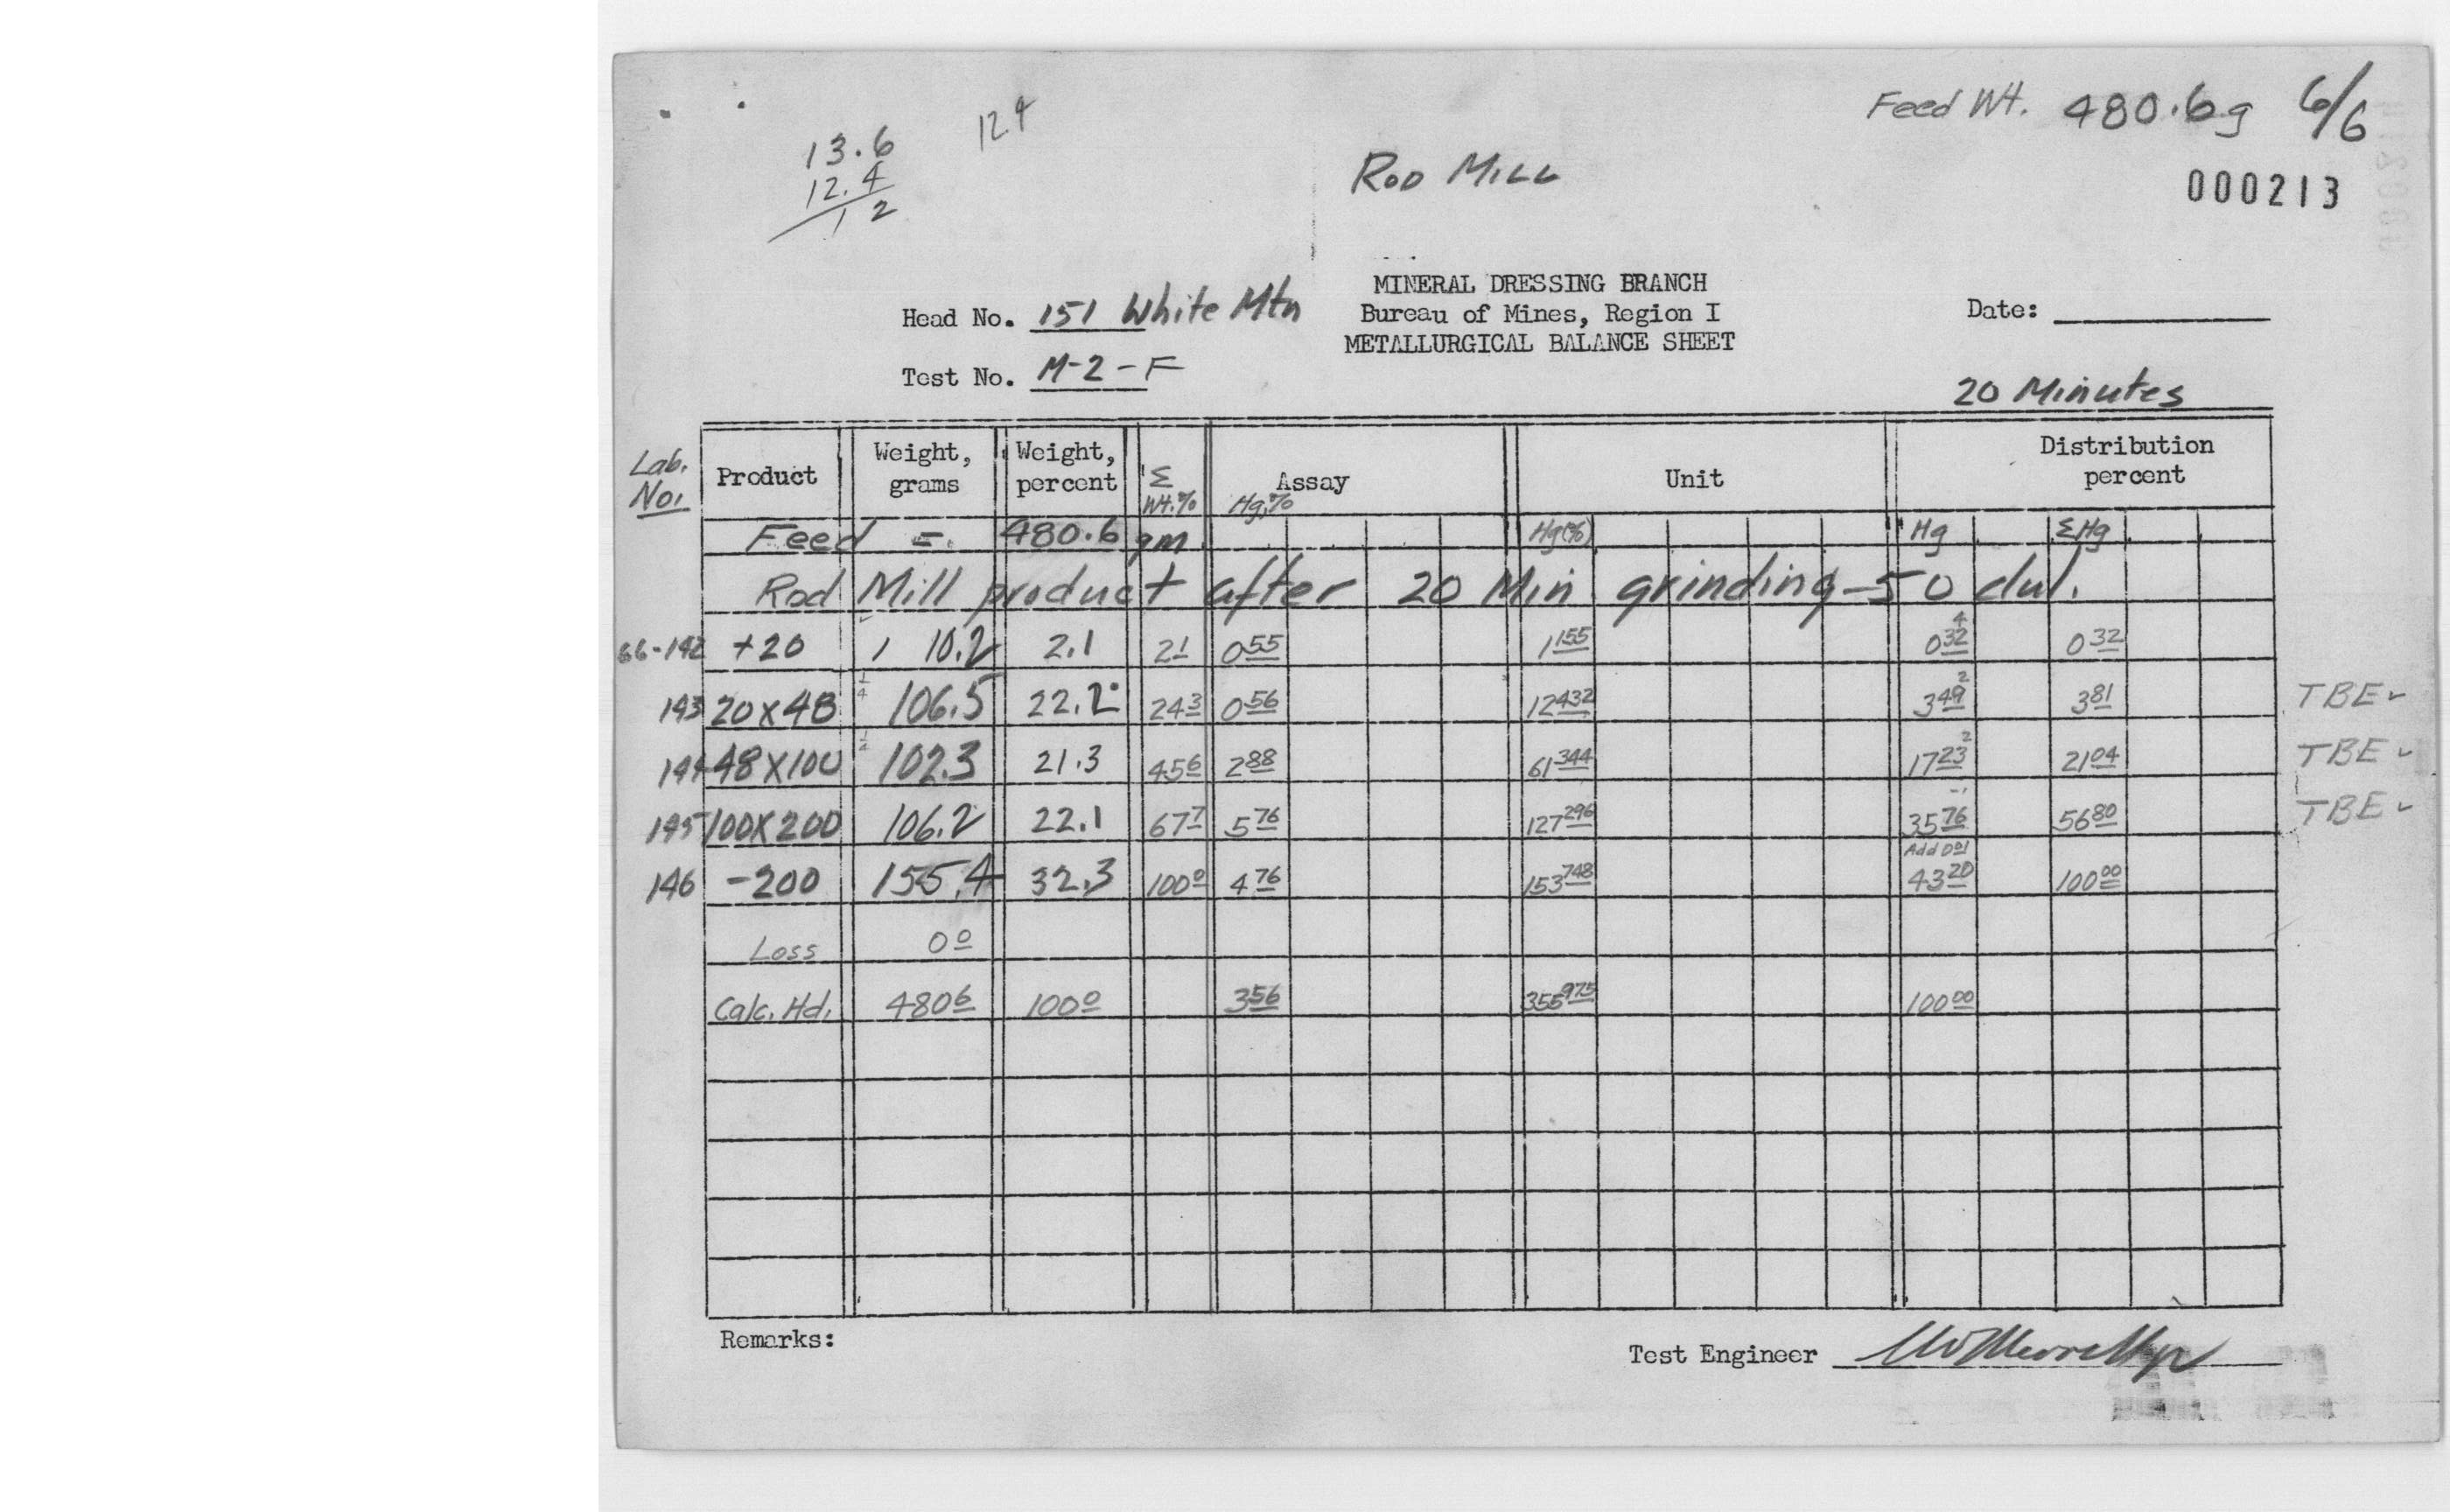 Feed Wt. 480.6g 6/6
13.6
12.4
1 2
12.4
Rod Mill
000213
MINERAL DRESSING BRANCH
Bureau of Mines, Region I
METALLURGICAL BALANCE SHEET
Head No. 151 White Mtn
Test No. M-2-F
Date:
20 Minutes
Lab. No. Product Weight, grams Weight, percent Σ Wt.% Assay Hg,% Unit Distribution percent
Feed = 480.6 gm Hg(%) Hg ΣHg
Rod Mill product after 20 Min grinding-50
66-142 +20 10.2 2.1 2.1 0.55 1.155 0.32 4 0.32
143 20x48 106.5 22.2 24.3 0.56 12.432 3.49 2 3.81 TBE ✓
144 48x100 102.3 21.3 45.6 2.88 61.344 17.23 2 21.04 TBE ✓
145 100x200 106.2 22.1 67.7 5.76 127.296 35.76 -1 56.80 TBE ✓
146 -200 155.4 32.3 100.0 4.76 153.748 Add 0.01 43.20 100.00
Loss 0.0
Calc. Hd. 480.6 100.0 3.56 355.975 100.00
Remarks:
Test Engineer